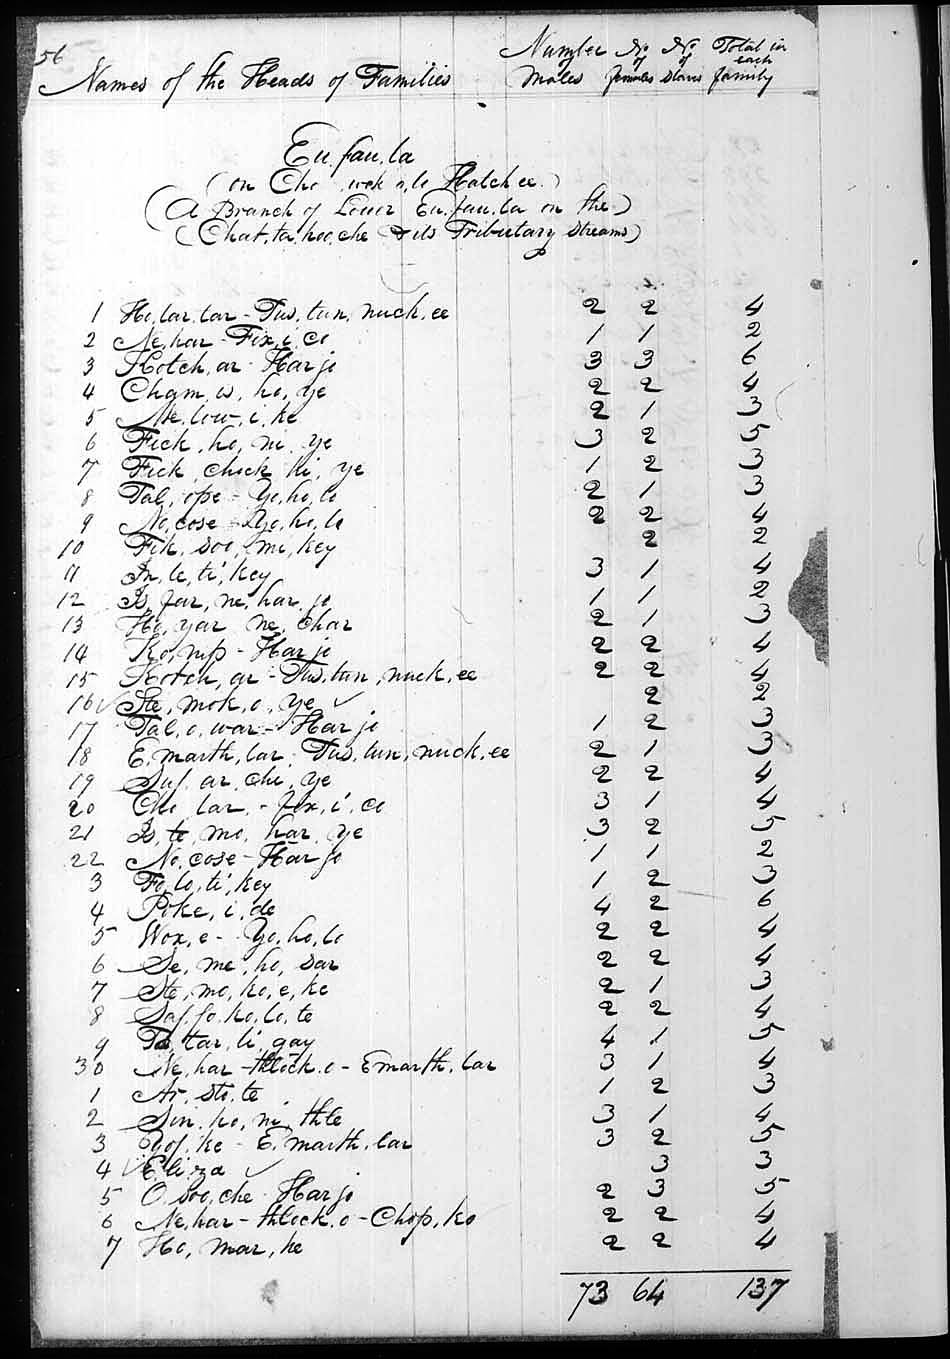 56
Names of the Heads of Families Number of Males No of females No of Slaves Total in each family
Eu.fau.la
(on Cho wok o,le Hatch ee.)
(A Branch of Lower Eu.fau.la on the)
(Chat.ta.hoo.che & its Tributary Streams)
1 Ho,lar,tar - Tus,tun,nuck,ee 2 2 4
2 Ne,har - Fix,i,co 1 1 2
3 Kotch,ar - Harjo 3 3 6
4 Cham,is,ho,ye 2 2 4
5 Me,low,i,ke 2 1 3
6 Fick,ho,ni,ye 3 2 5
7 Fick,chick,ki,ye 1 2 3
8 Tal,ope - Yo,ho,lo 2 1 3
9 No,cose - Yo,ho,lo 2 2 4
10 Fik,soo,mi,key 2 2
11 In,le,ti',key 3 1 4
12 Is,far,ne,har,jo 1 1 2
13 Ho,yar,ne,char 2 1 3
14 Ko,nip - Harjo 2 2 4
15 Kotch,ar - Tus,tun,nuck,ee 2 2 4
16 Ste,mok,o,ye 2 2
17 Tal,o,war - Harjo 1 2 3
18 E,marth,lar - Tus,tun,nuck,ee 2 1 3
19 Suf,ar,che,ye 2 2 4
20 Cho,lar - fix,i',co 3 1 4
21 Is,te,mo,har,ye 3 2 5
22 No,cose - Harjo 1 1 2
3 Fo,lo,ti',key 1 2 3
4 Poke,i,de 4 2 6
5 Wox,e - Yo,ho,lo 2 2 4
6 Se,me,ho,sar 2 2 4
7 Ste,mo,ko,e,ke 2 1 3
8 Saf,fo,ko,lo,te 2 2 4
9 tar,li,gay 4 1 5
30 Ne,har - thlock,o - Emarth,lar 3 1 4
1 Ar,sto,te 1 2 3
2 Sin,ho,ni,thle 3 1 4
3 Yof,ke - E,marth,lar 3 2 5
4 Eliza 3 3
5 O,soo,che Harjo 2 3 5
6 Ne,har - thlock,o - Chop,ko 2 2 4
7 Ho,mar,he 2 2 4
73 64 137